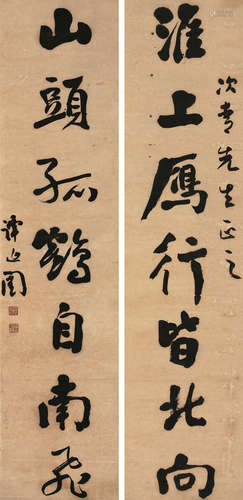 次青先生正之
淮上雁行皆北向
山頭孤鶴自南飛
譚延闓